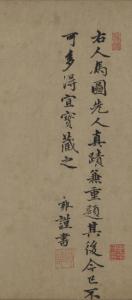 右人馬圖先人真蹟兼重題其後今已不
可多得宜寶藏之
雍謹書